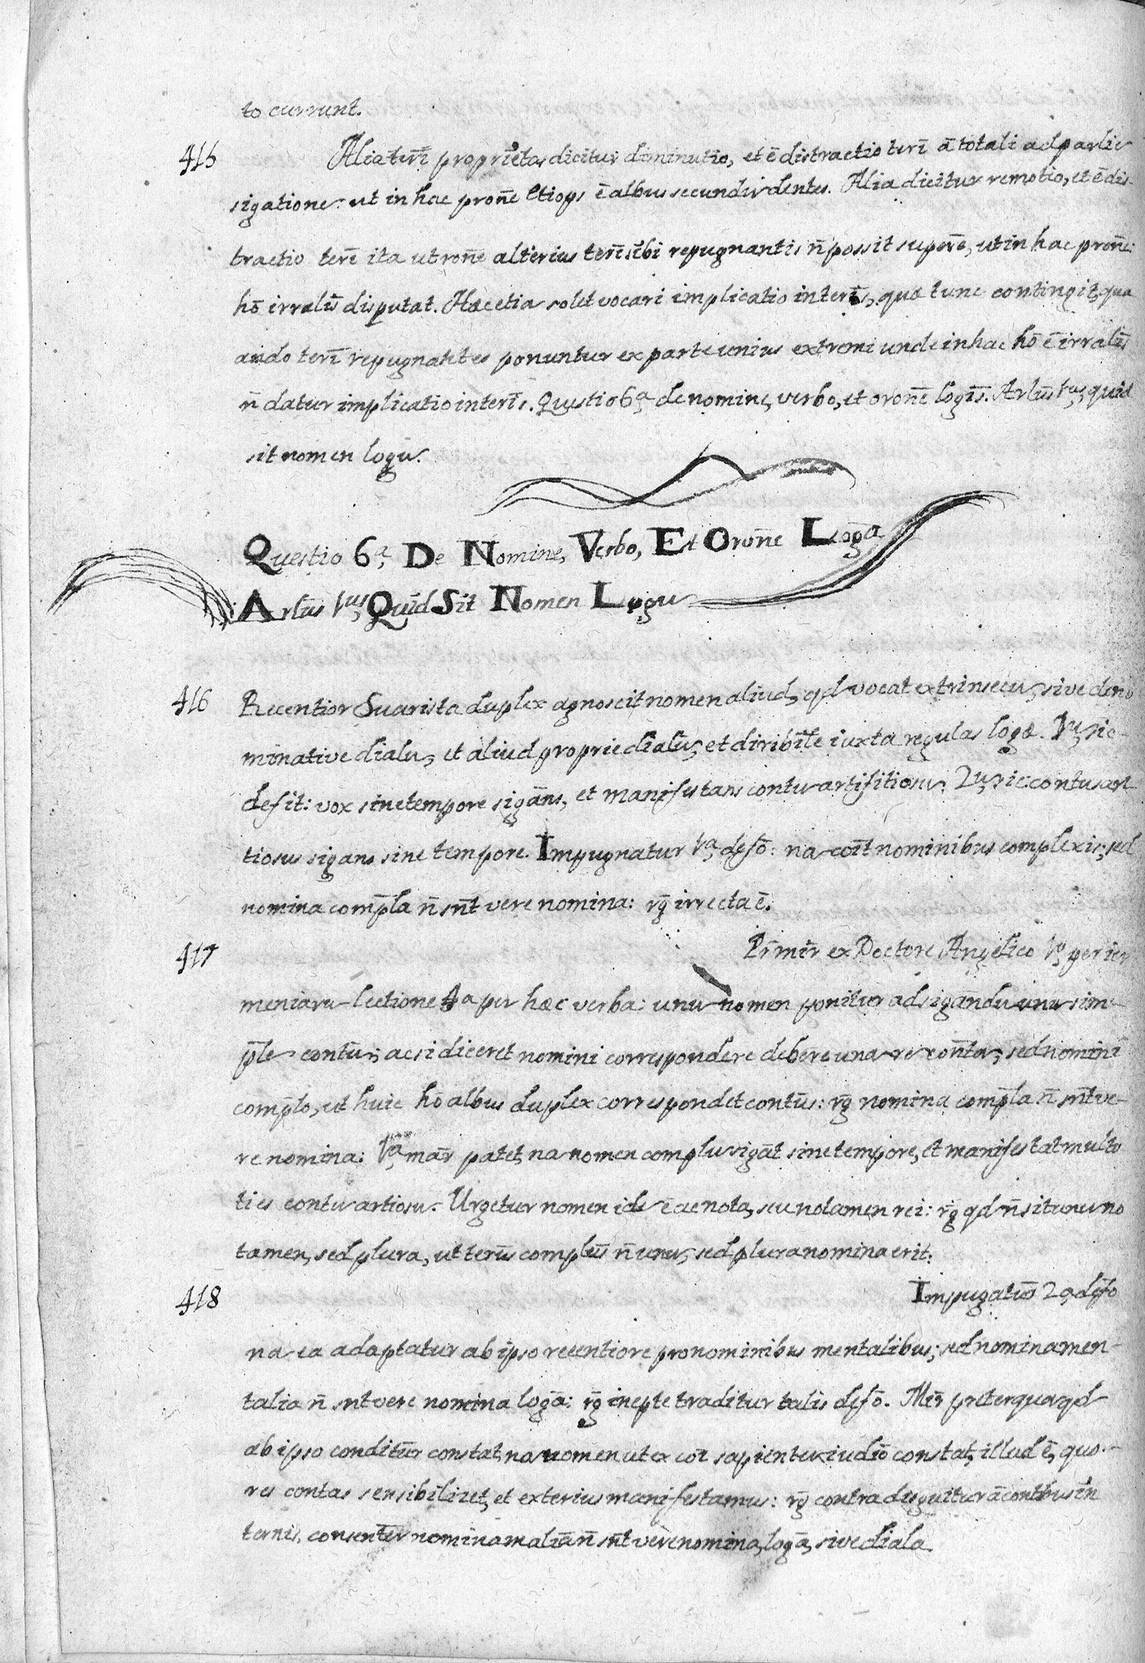 to currunt.
415 Alia teri͞ proprietas dicitur diminutio, et e͞ distractio teri͞ a͞ totali ad partic
sigatione: ut in hac prone͞ Etiops e͞ albus secundu dentes. Alia dicitur remotio, et e͞ dis-
tractio teri͞ ita ut rone͞ alterius teri͞ sibi repugnantis n͞ possit supone͞, ut in hac prone͞:
ho͞ irralis͞ disputat. Hæc etia solet vocari implicatio in teris͞, quæ tunc contingit, qua
ando teri͞ repugnantes ponuntur ex parte unius extremi unde in hac ho͞ e͞ irralis͞
n͞ datur implicatio in teris͞. Questio 6ª de nomine, verbo, et orone͞ logis͞. Arlus͞ 1us, quid
sit nomen logu.
Questio 6ª. De Nomine, Verbo, Et Orone͞ Loga͞
Arlus͞ 1us, Quid Sit Nomen Logu
416 Recentior Suarista duplex agnoscit nomen aliud, qd vocat extrinsecu, sive deno
minative dialu, et aliud proprie dialu͞, et diribile͞ iuxta regulas logæ. 1u, sic
defit: vox sine tempore sigans͞, et manifestans contu artifitiosu. 2u, sic: contus art
tiosus sigans sine tempore. Impugnatur 1ª, defo͞: na coit͞ nominibus complexis; sed
nomina compla͞ n͞ snt͞ vere nomina: rg͞ irrecta e͞.
417 Prmitr͞ ex Doctore Angelico 1º perier
meniaru lectione 4a per hæc verba: unu nomen ponitur ad sigandu͞ unu sim-
ple͞ contu͞; ac si diceret nomini correspondere debere una re conta͞; sed nomini
complo͞, ut huic ho͞ albus duplex correspondet contus͞: rg͞ nomina compla͞ n͞ snt͞ ve-
re nomina. 1ª, mar͞ patet, na nomen complu sigat͞ sine tempore, et manifestat multo
ties contu artiosu. Urgetur nomen ide e͞ ac nota, seu notamen rei: rg͞ qd n͞ sit unu no
tamen, sed plura, ut terus͞ complus͞ n͞ unu, sed plura nomina erit.
418 Impugatur 2ª, defo͞
na ea adaptatur ab ipso recentiore pro nominibus mentalibus; sed nomina men-
talia n͞ snt͞ vere nomina loga͞: rg͞ inepte traditur talis defo͞. Mir͞ preterqua qd
ab ipso conditur͞ constat, na nomen ut ex coi͞ sapientu iudio͞ constat, illud e͞, quo
res contas sensibilizet, et exterius manifestamus: rg͞ contradisguitur a͞ contibus in͞
ternis, consenter͞ nomina malia͞ n͞ snt͞ vere nomina loga͞, sive diala